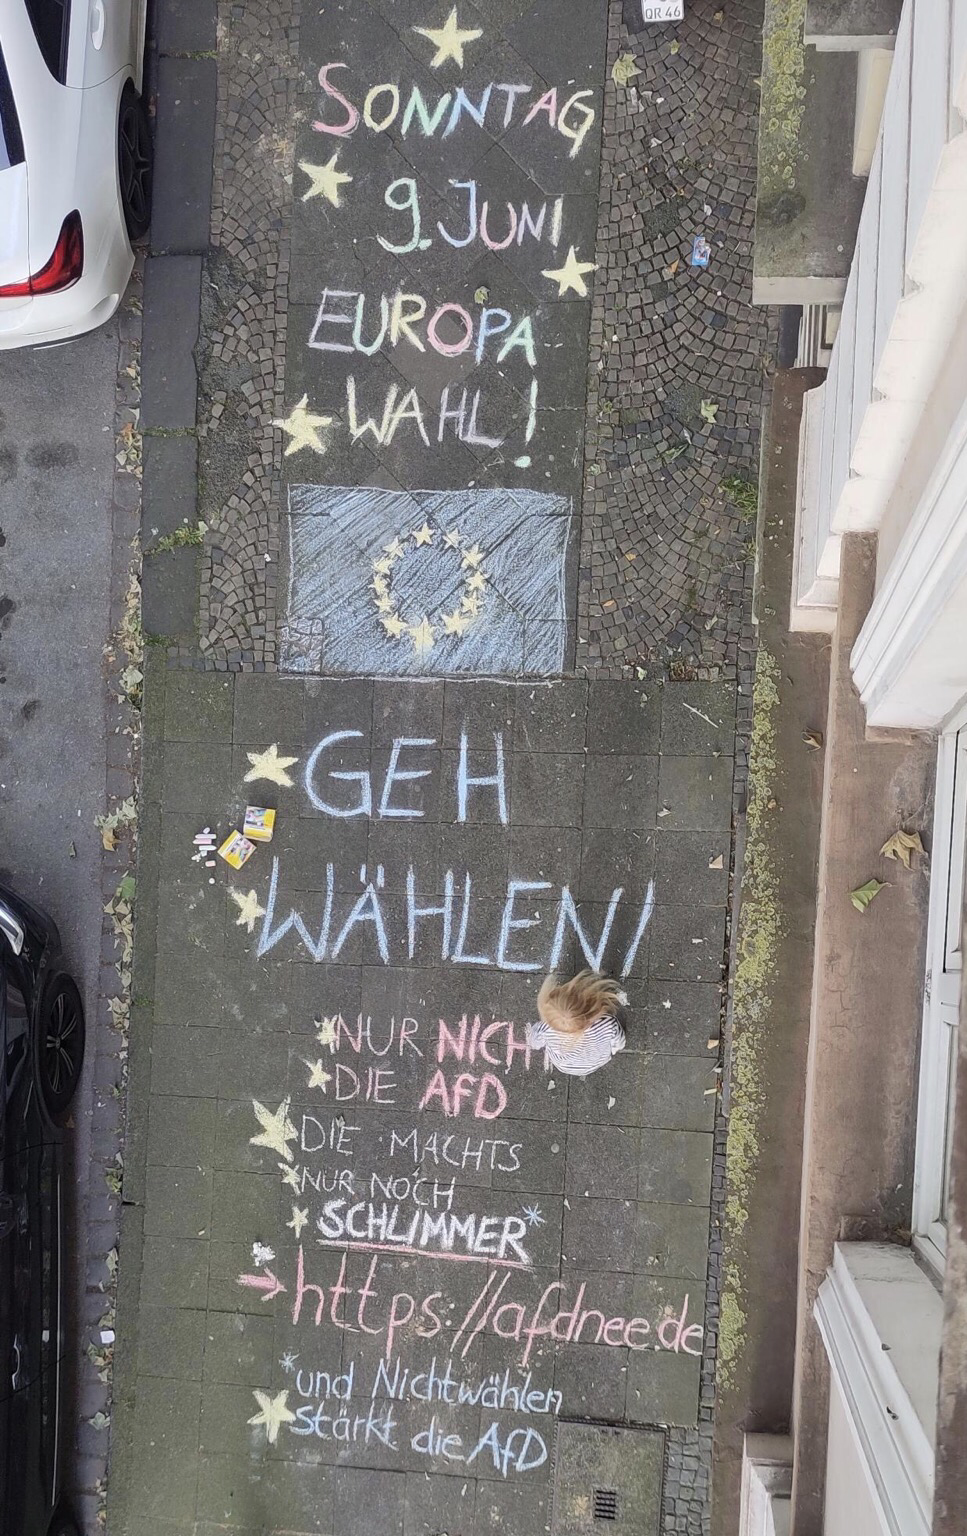 QR 46
SONNTAG
9. JUNI
EUROPA
WAHL!
GEH
WÄHLEN!
NUR NICHT
DIE AFD
DIE MACHTS
NUR NOCH
SCHLIMMER*
→ https://afdnee.de
*und Nichtwählen
stärkt die AfD